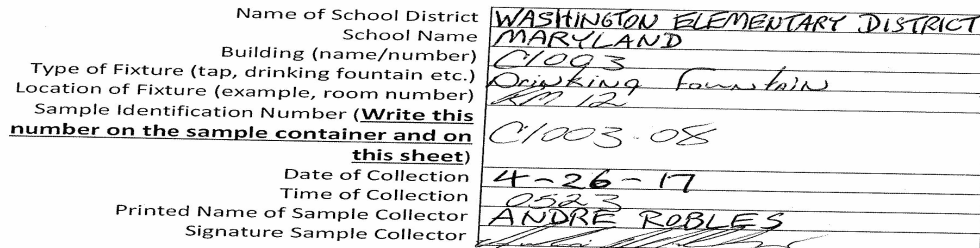 Name of School District WASHINGTON ELEMENTARY DISTRICT
School Name MARYLAND
Building (name/number) C1003
Type of Fixture (tap, drinking fountain etc.) Drinking Fountain
Location of Fixture (example, room number) RM 12
Sample Identification Number (Write this
number on the sample container and on
this sheet) C1003.08
Date of Collection 4-26-17
Time of Collection 0523
Printed Name of Sample Collector ANDRE ROBLES
Signature Sample Collector